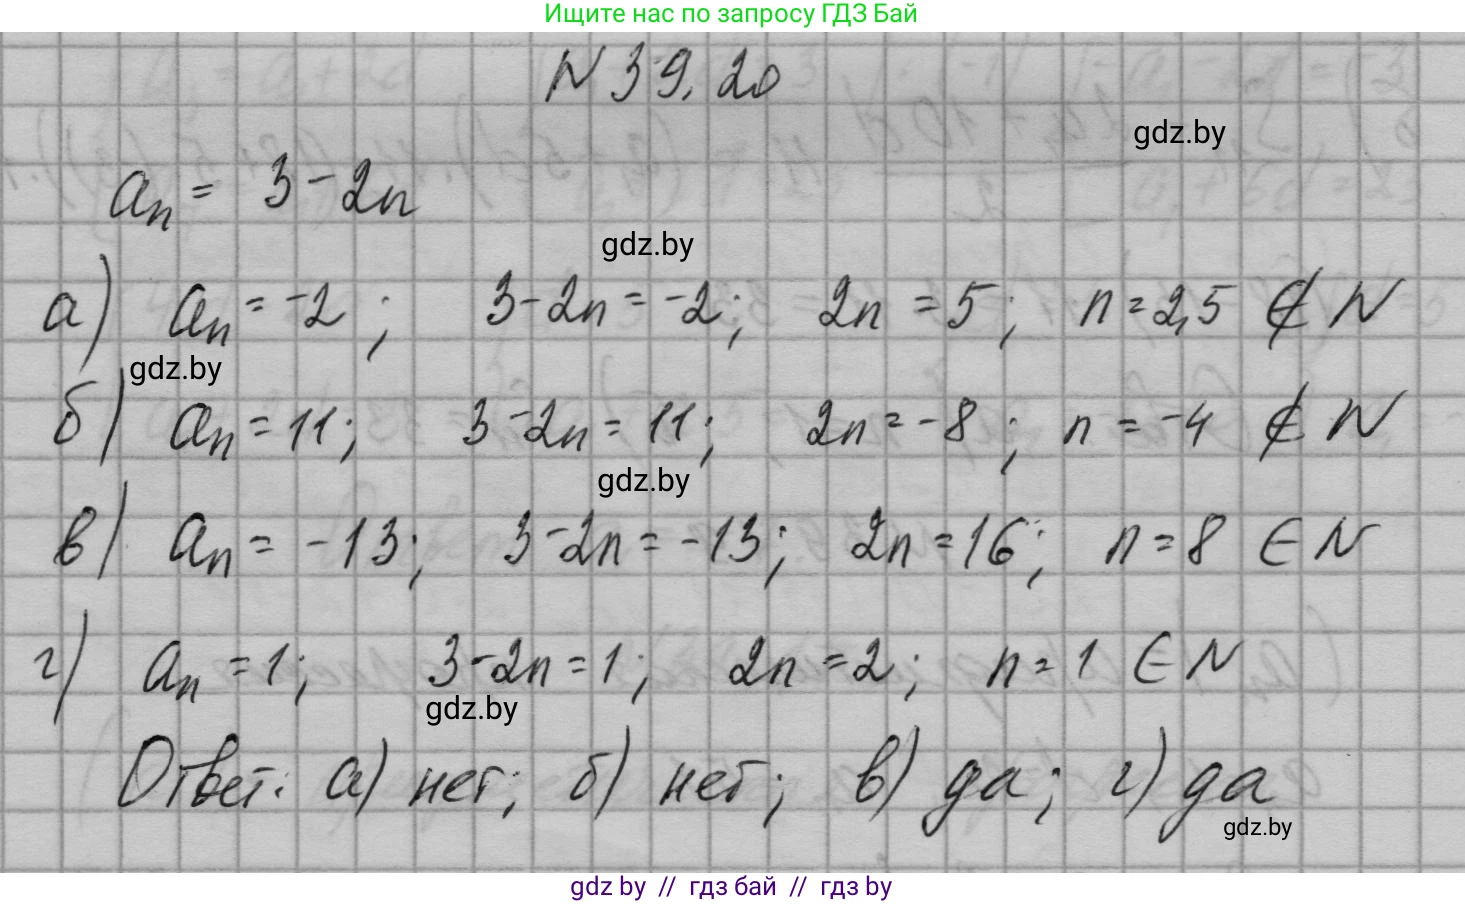 Ищите нас по запросу ГДЗ Бай
N 39.20
gdz.by
aₙ = 3 - 2n
gdz.by
а) aₙ = -2; 3 - 2n = -2; 2n = 5; n = 2,5 ∉ N
gdz.by
б) aₙ = 11; 3 - 2n = 11; 2n = -8; n = -4 ∉ N
gdz.by
в) aₙ = -13; 3 - 2n = -13; 2n = 16; n = 8 ∈ N
г) aₙ = 1; 3 - 2n = 1; 2n = 2; n = 1 ∈ N
gdz.by
Ответ: а) нет; б) нет; в) да; г) да
gdz.by
gdz by // гдз бай // гдз by